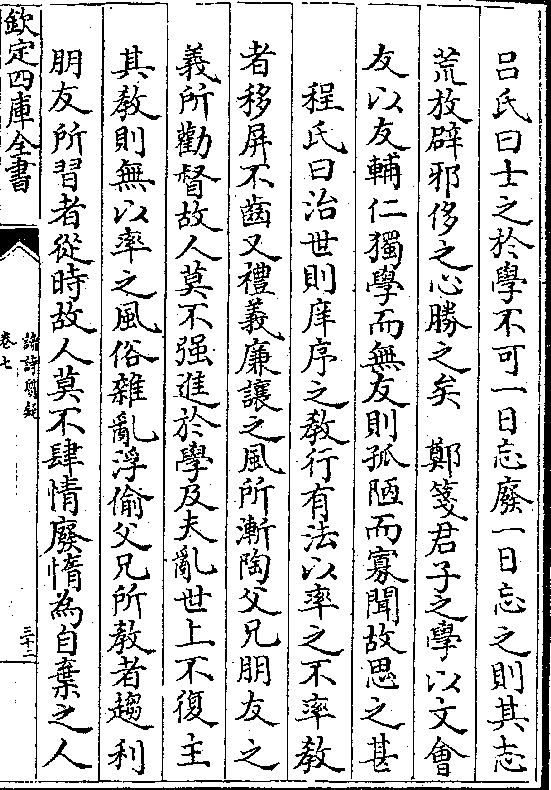 呂氏曰士之於學不可一日忘廢一日忘之則其志
荒放辟邪侈之心勝之矣　鄭箋君子之學以文會
友以友輔仁獨學而無友則孤陋而寡聞故思之甚
程氏曰治世則庠序之教行有法以率之不率教
者移屏不齒又禮義廉讓之風所漸陶父兄朋友之
義所勸督故人莫不强進於學及夫亂世上不復主
其教則無以率之風俗雜亂浮偷父兄所教者趨利
朋友所習者從時故人莫不肆情廢惰為自棄之人
欽定四庫全書
卷七
三十二